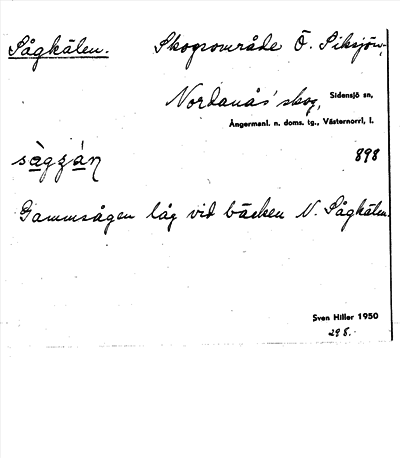 Sågkälen. Skogsområde Ö. Siksjön,
Nordanås' skog, Sidensjö sn,
Ångermanl. n. doms. tg., Västernorrl. l.
898
Gammsågen låg vid bäcken N. Sågkälen.
Sven Hiller 1950
298.